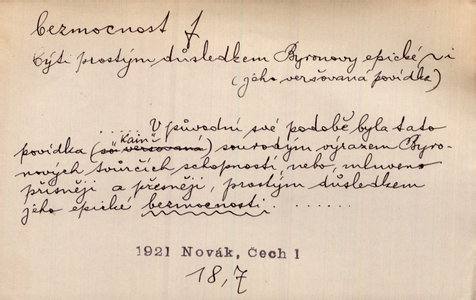 bezmocnost f
býti prostým důsledkem Byronovy epické ~i
(jeho veršovaná povídka)
.... V původní své podobě byla tato
"Kain"
povídka (sou veršovaná) sourodým výrazem Byro-
nových tvůrčích schopností, nebo, mluveno
přísněji a přesněji, prostým důsledkem
jeho epické bezmocnosti.......
1921 Novák, Čech 1
18,7